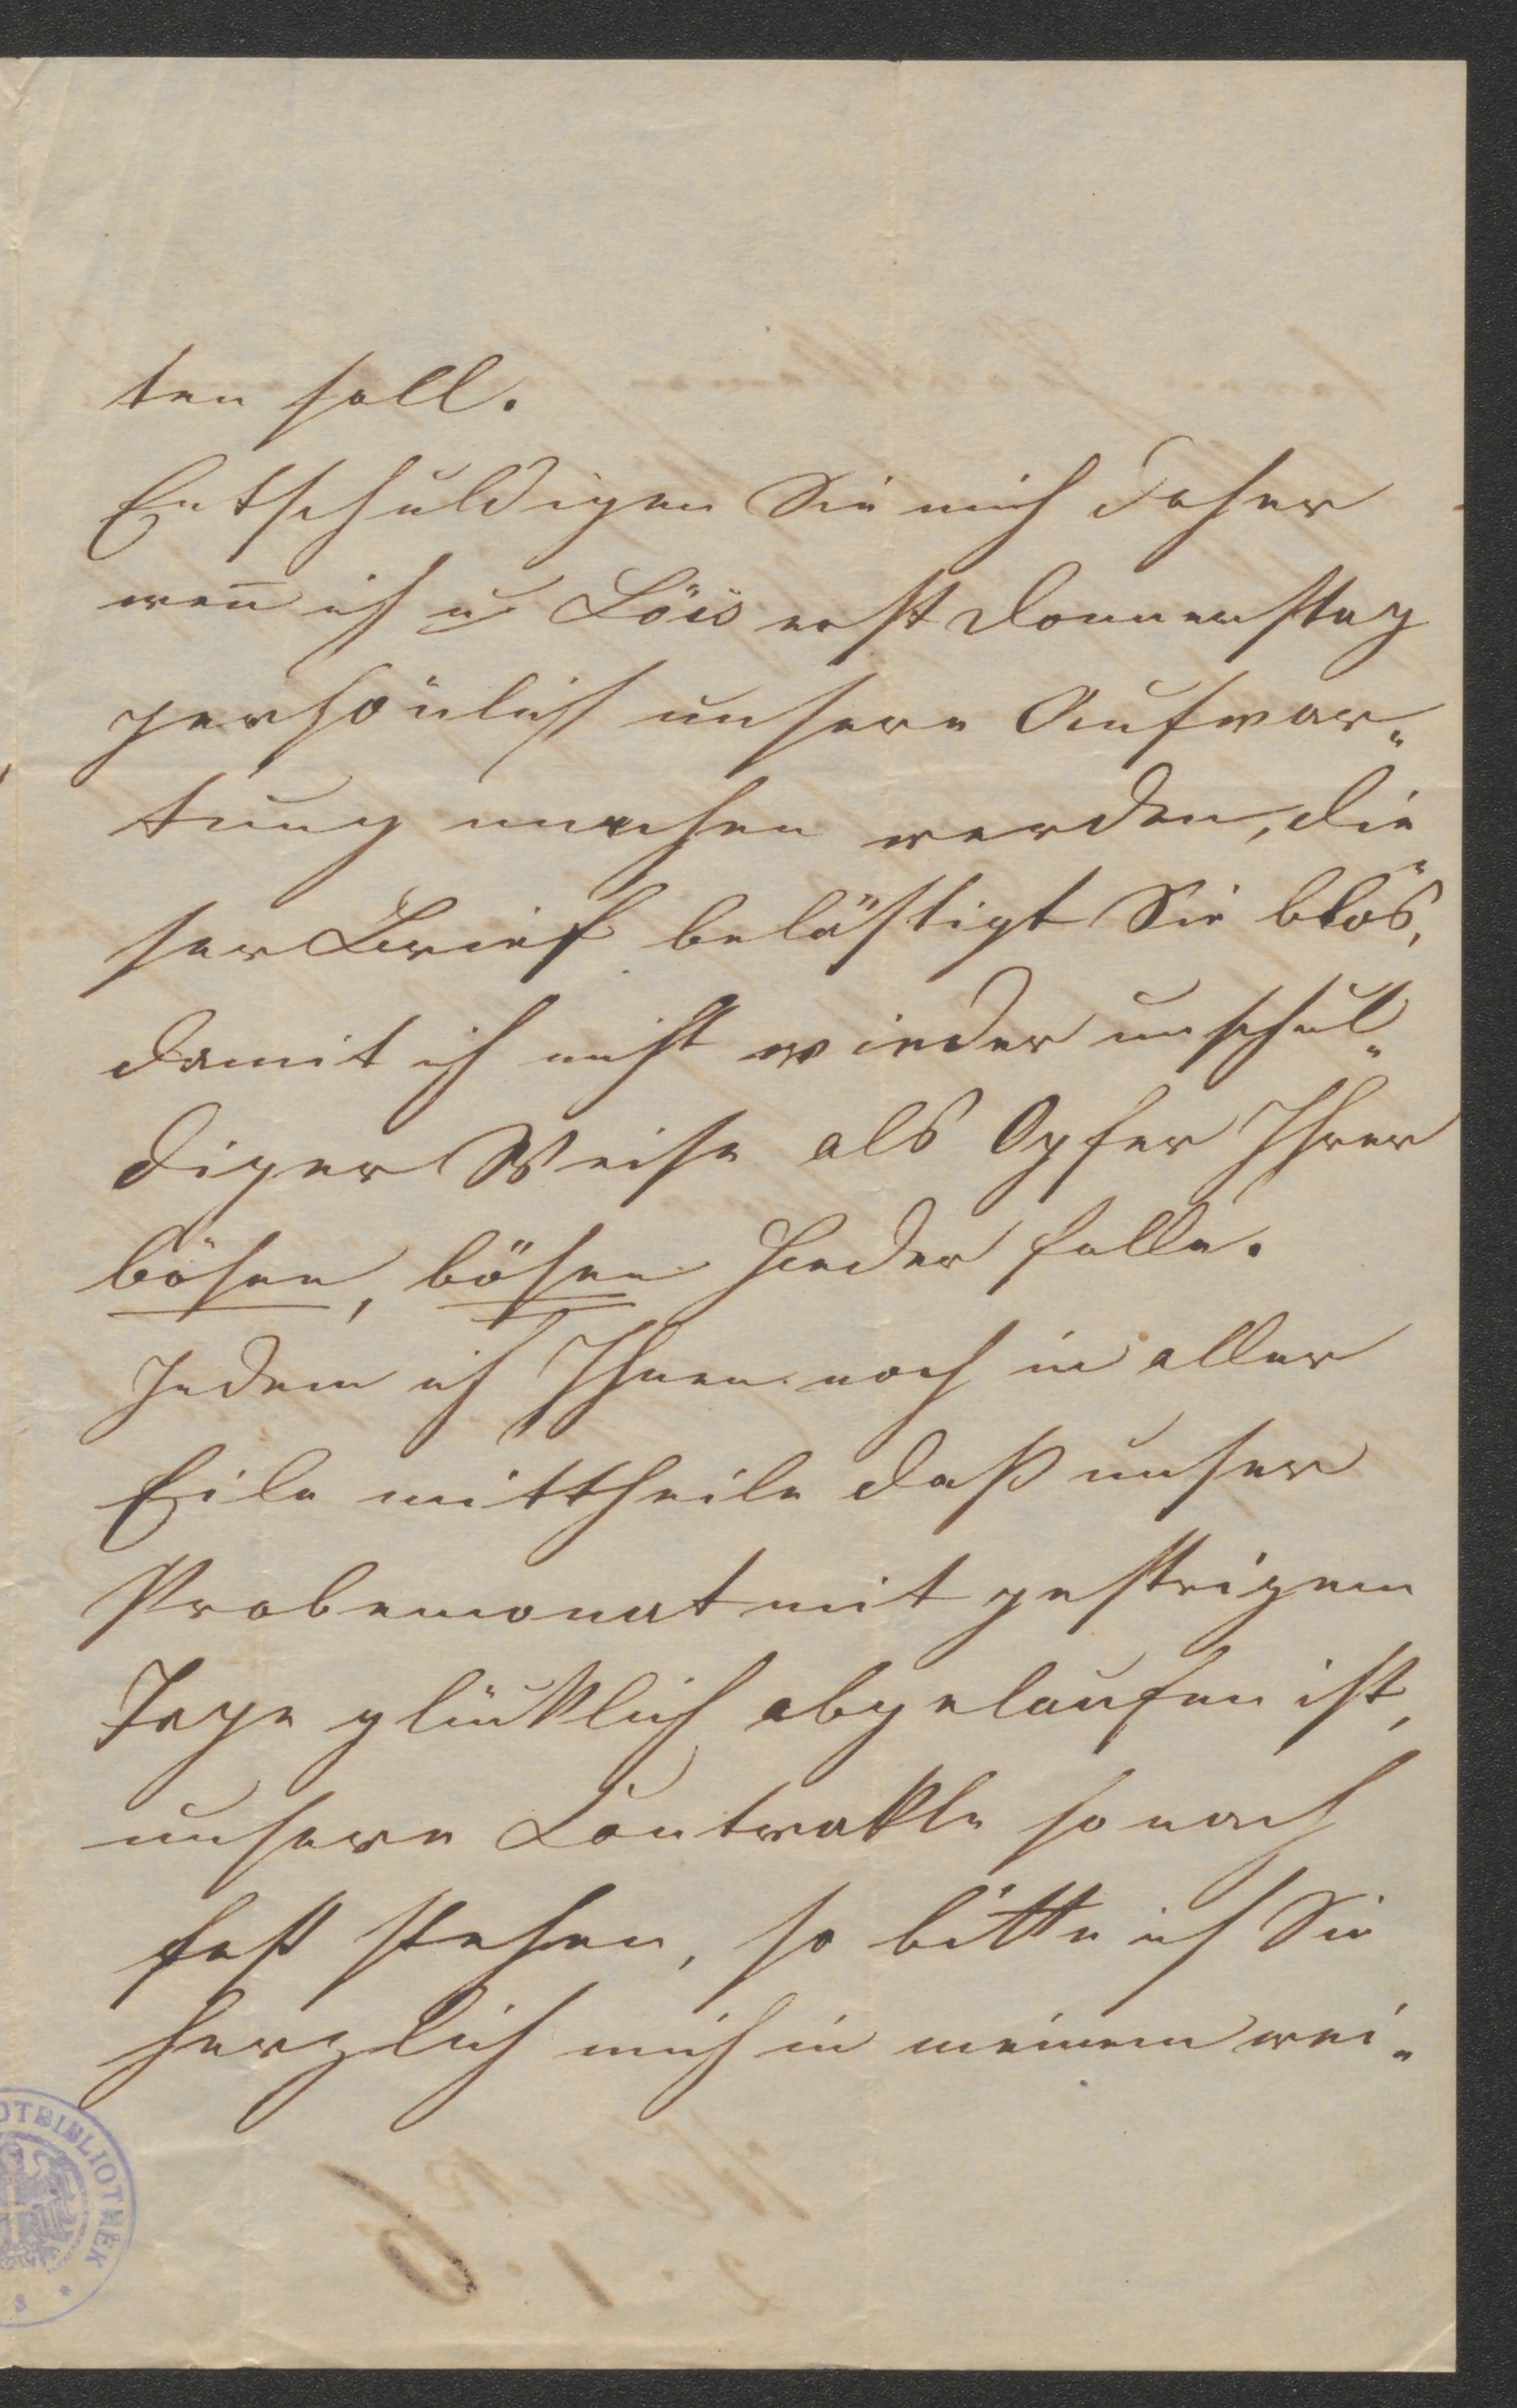 ten soll.
Entschuldigen Sie mich daher
wen̅ ich u Löis erst Donnerstag
persönlich unsere Aufwar„
tung machen werden, die„
ser Brief belästigt Sie blos,
damit ich nicht wieder unschul„
diger Weise als Opfer Ihrer
bösen, bösen Feder falle.
Indem ich Ihnen noch in aller
Eile mittheile daß unser
Probemonat mit gestrigem
Tage glücklich abgelaufen ist,
unsere Contrakte so nach
fest stehen, so bitte ich Sie
herzlich mich in meinem wei„
OTBIBLIOTHEK